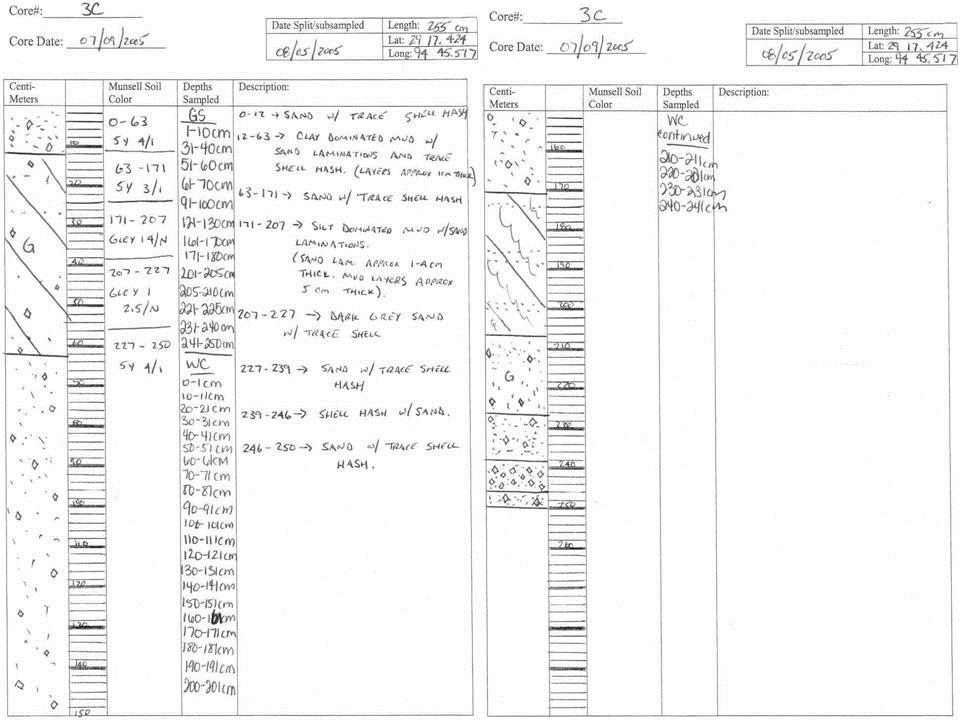 Core#: 3C
Core Date: 07/09/2005
Date Split/subsampled
08/05/2005
Length: 255 cm
Lat: 29 17.424
Long: 94 45.517
Centi-Meters
Munsell Soil Color
Depths Sampled
Description:
10
20
30
40
50
60
70
80
90
100
110
120
130
140
150
G
0-63
5Y 4/1
63-171
5Y 3/1
171-207
GLEY 1 4/N
207-227
GLEY 1
2.5/N
227-250
5Y 4/1
GS
1-10cm
31-40cm
51-60cm
61-70cm
91-100cm
121-130cm
161-170cm
171-180cm
201-205cm
205-210cm
221-225cm
231-240cm
241-250cm
WC
0-1cm
10-11cm
20-21cm
30-31cm
40-41cm
50-51cm
60-61cm
70-71cm
80-81cm
90-91cm
100-101cm
110-111cm
120-121cm
130-131cm
140-141cm
150-151cm
160-161cm
170-171cm
180-181cm
190-191cm
200-201cm
0-12 → SAND W/ TRACE SHELL HASH
12-63 → CLAY DOMINATED MUD W/
SAND LAMINATIONS AND TRACE
SHELL HASH. (LAYERS APPROX 1cm THICK)
63-171 → SAND W/ TRACE SHELL HASH
171-207 → SILT DOMINATED MUD W/SAND
LAMINATIONS.
(SAND LAM. APPROX 1-4cm
THICK. MUD LAYERS APPROX
5 cm THICK).
207-227 → DARK GREY SAND
W/ TRACE SHELL
227-239 → SAND W/ TRACE SHELL
HASH
239-246 → SHELL HASH W/ SAND.
246-250 → SAND W/ TRACE SHELL
HASH.
Core#: 3C
Core Date: 07/09/2005
Date Split/subsampled
08/05/2005
Length: 255 cm
Lat: 29 17.424
Long: 94 45.517
Centi-Meters
Munsell Soil Color
Depths Sampled
Description:
160
170
180
190
200
210
220
230
240
250
260
G
WC
continued
210-211cm
220-221cm
230-231cm
240-241cm